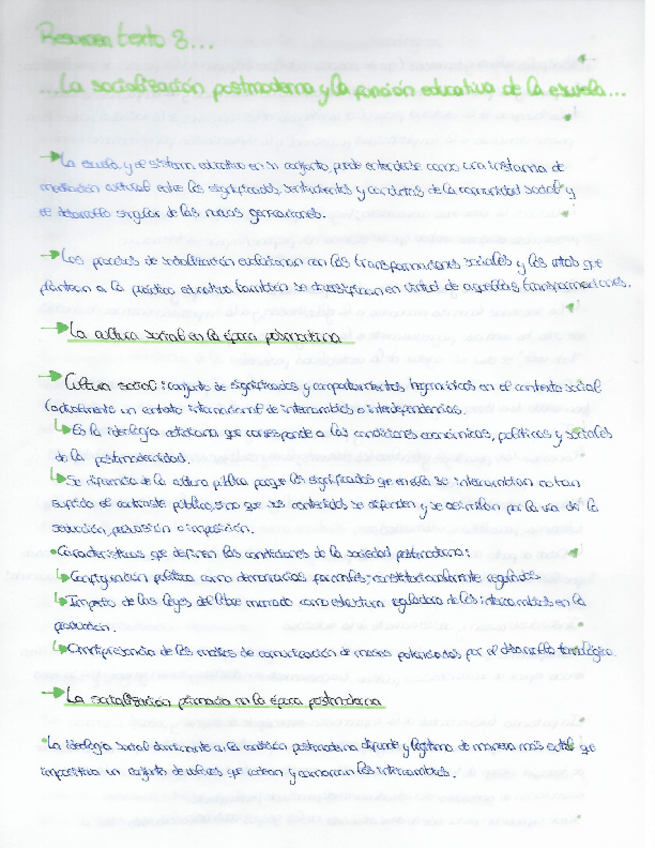 Resumen texto 3...
...La socialización postmoderna y la función educativa de la escuela...
La escuela, y el sistema educativo en su conjunto, puede entenderse como una instancia de
mediación cultural entre los significados, sentimientos y conductas de la comunidad social y
el desarrollo singular de las nuevas generaciones.
Los procesos de socialización evolucionan con las transformaciones sociales y los retos que
plantean a la práctica educativa también se diversifican en virtud de aquellas transformaciones.
La cultura social en la época postmoderna
Cultura social: conjunto de significados y comportamientos hegemónicos en el contexto social
(actualmente un contexto internacional de intercambios e interdependencias.
Es la ideología cotidiana que corresponde a las condiciones económicas, políticas y sociales
de la postmodernidad.
Se diferencia de la cultura pública porque los significados que en ella se intercambian no han
sufrido el contraste público, sino que sus contenidos se difunden y se asimilan por la vía de la
seducción, persuasión o imposición.
Características que definen las condiciones de la sociedad postmoderna:
Configuración política como democracias formales, constitucionalmente reguladas
Imperio de las leyes del libre mercado como estructura reguladora de los intercambios en la
producción.
Omnipresencia de los medios de comunicación de masas potenciados por el desarrollo tecnológico.
La socialización primaria en la época postmoderna
La ideología social dominante en la condición postmoderna difunde y legitima de manera más sutil que
impositiva un conjunto de valores que ordenan y enmarcan los intercambios.